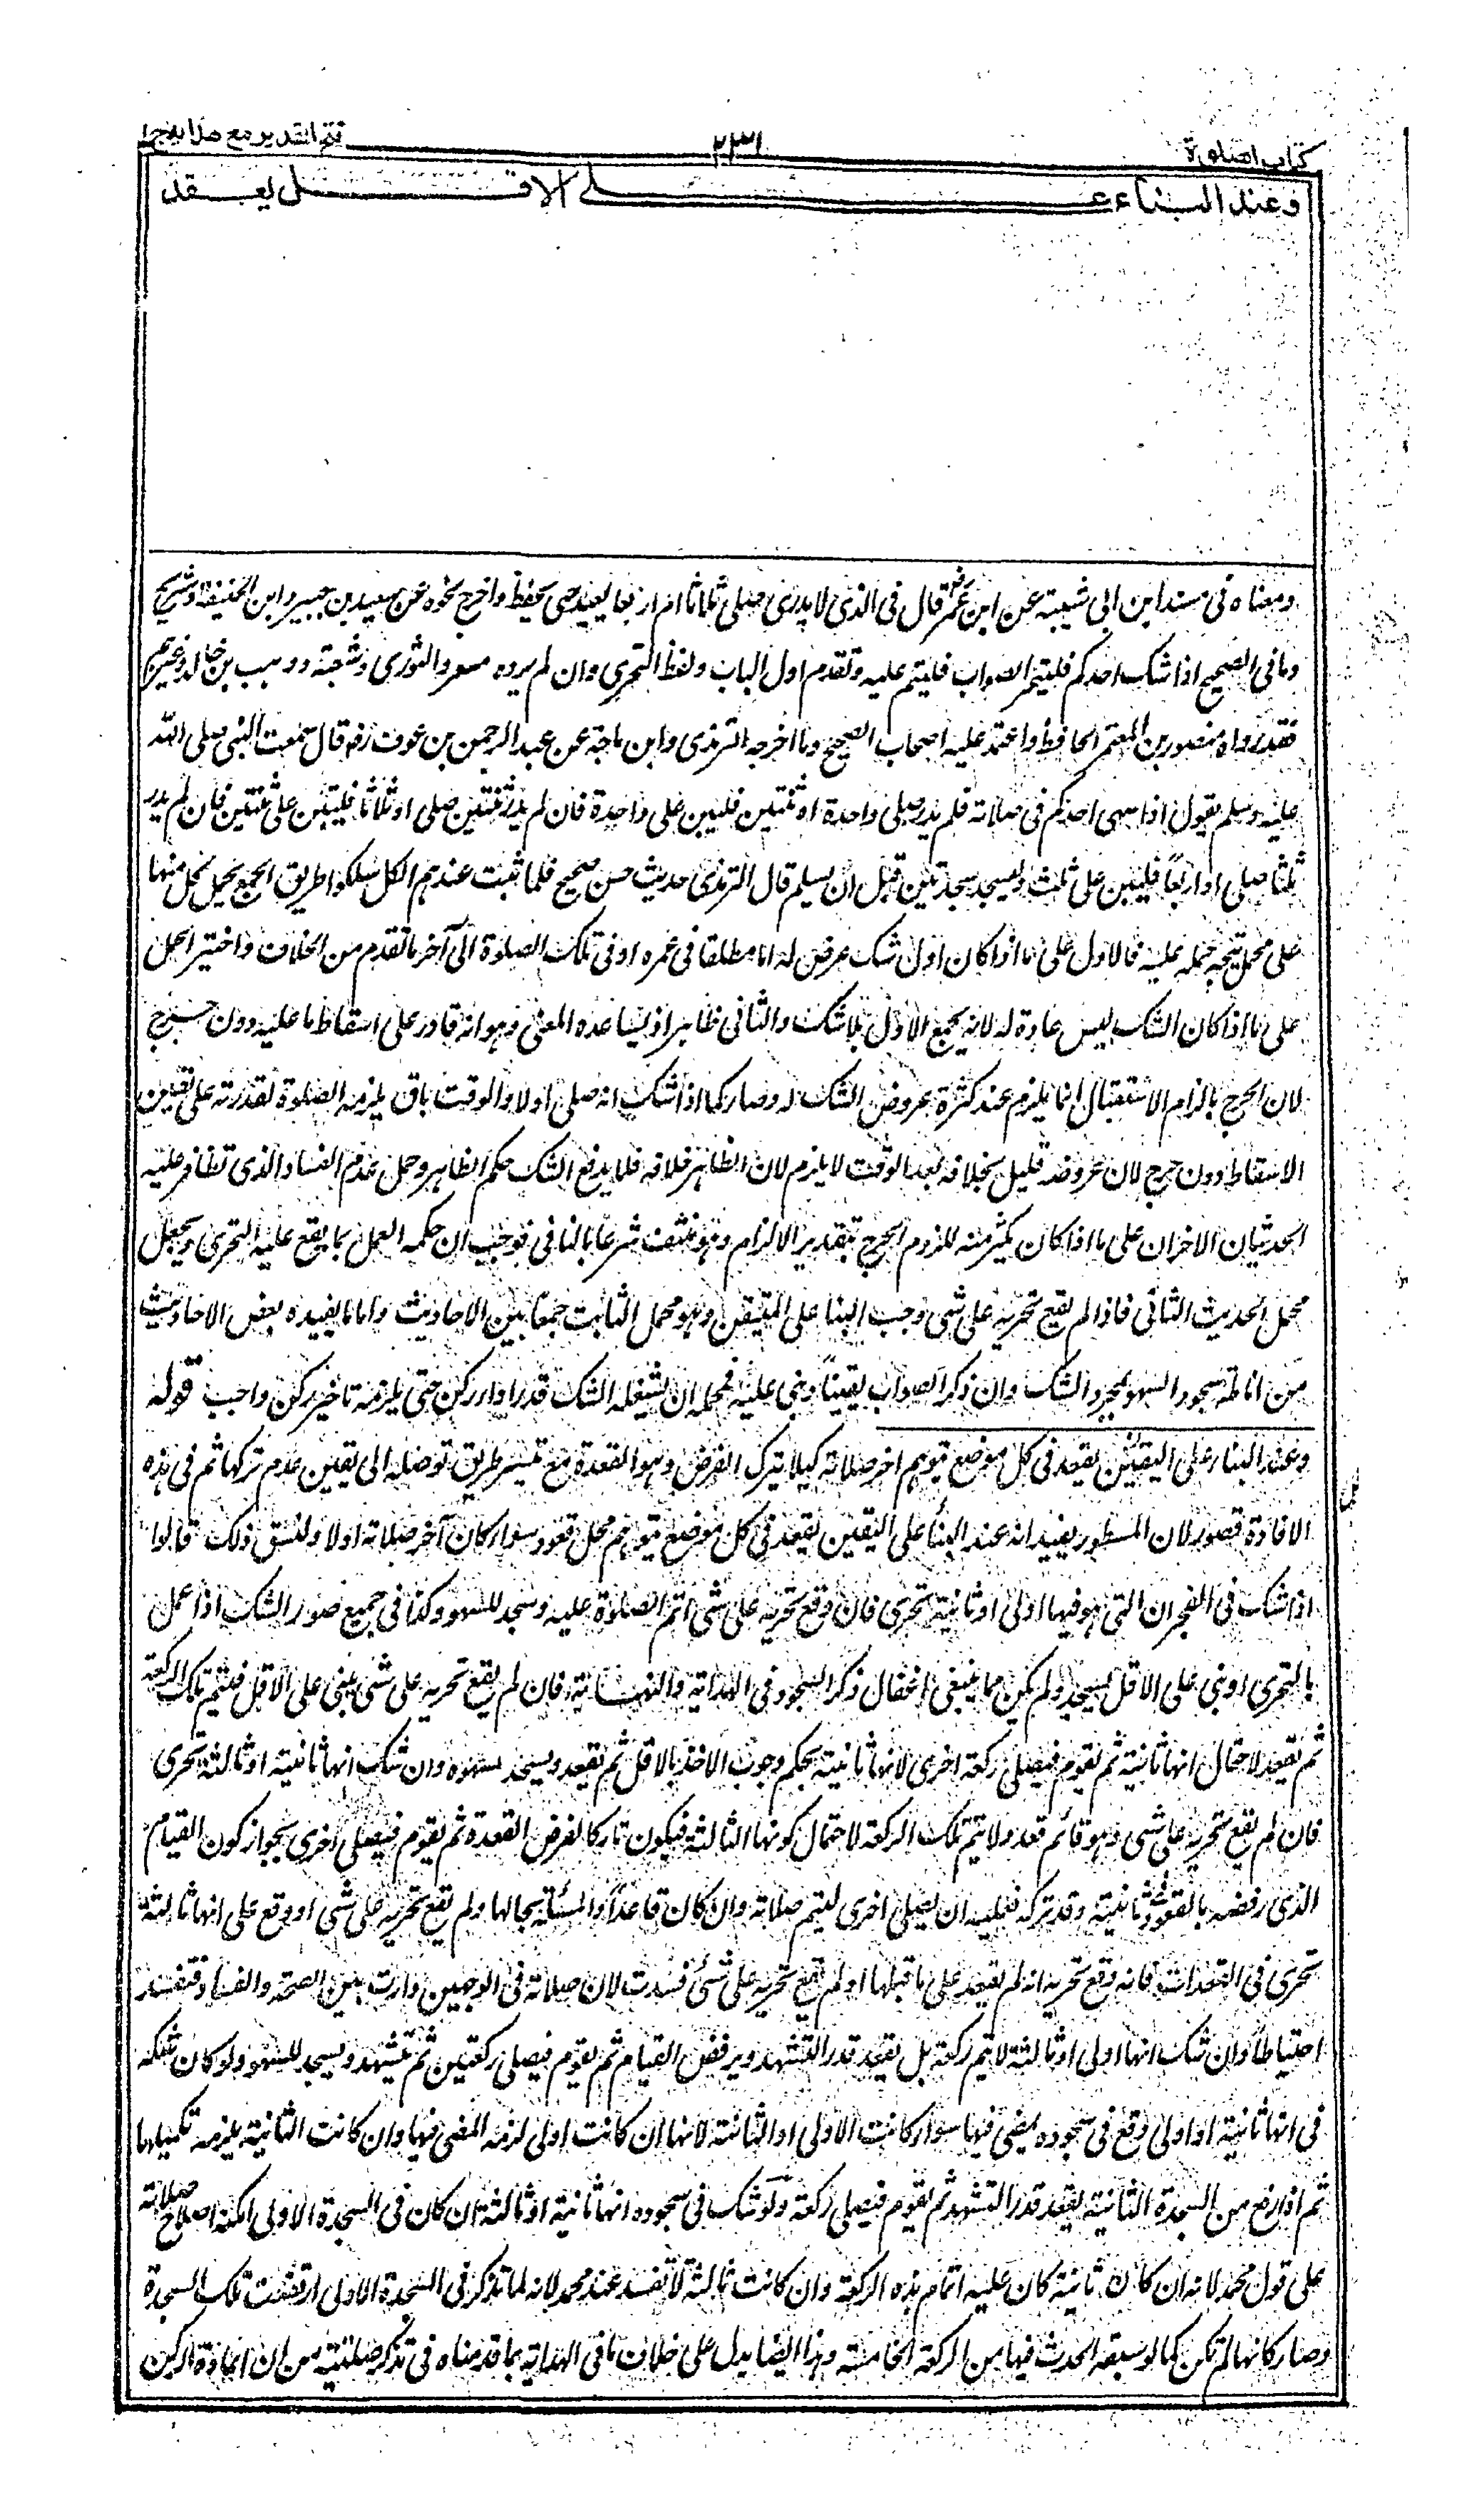 كتاب الصلوة
٢٣١
فتح القدير مع هدايه ج١
وعند البناء على الاقل يقعد
ومعناه فى مسند ابن ابى شيبة عن ابن عمر قال فى الذى لا يدرى صلى ثلاثا ام اربعا يعيد حتى يحفظ واخرج نحوه عن سعيد بن جبير وابن الحنفية وشريح
وما فى الصحيح اذا شك احدكم فليتحر الصواب فليتم عليه وتقدم اول الباب ولفظ التحرى وان لم يروه مسعر والثورى وشعبة ووهيب بن خالد وغيرهم
فقد رواه منصور بن المعتمر الحافظ واعتمد عليه اصحاب الصحيح وما اخرجه الترمذى وابن ماجة عن عبد الرحمن بن عوف رض قال سمعت النبى صلى الله
عليه وسلم يقول اذا سهى احدكم فى صلاته فلم يدر صلى واحدة او ثنتين فليبن على واحدة فان لم يدر ثنتين صلى او ثلاثا فليبن على ثنتين فان لم يدر
ثلثا صلى او اربعا فليبن على ثلث وليسجد سجدتين قبل ان يسلم قال الترمذى حديث حسن صحيح فلما ثبت عندهم الكل سلكوا طريق الجمع بحمل كل منها
على محمل يتجه حمله عليه فالاول على ما اذا كان اول شك عرض له اما مطلقا فى عمره او فى تلك الصلوة الى آخر ما تقدم من الخلاف واختير الحمل
على ما اذا كان الشك ليس عادة له لانه يجمع الاول بلا شك والثانى ظاهر اذ يساعده المعنى وهو انه قادر على اسقاط ما عليه دون حرج
لان الحرج بالزام الاستقبال انما يلزم عند كثرة عروض الشك له وصار كما اذا شك انه صلى اولا والوقت باق يلزمه الصلوة لقدرته على يقين
الاسقاط دون حرج لان عروضه قليل بخلافه بعد الوقت لا يلزم لان الظاهر خلافه فلا يدفع الشك حكم الظاهر وحمل عدم الفساد الذى تظافر عليه
الحديثان الاخران على ما اذا كان يكثر منه للزوم الحرج بتقدير الالزام وهو منتف شرعا بالنافى فوجب ان حكمه العمل بما يقع عليه التحرى ويجعل
محمل الحديث الثانى فاذا لم يقع تحريه على شى وجب البنا على المتيقن وهو محمل الثابت جمعا بين الاحاديث واما ما يفيده بعض الاحاديث
من اناطة سجود السهو بمجرد الشك وان ذكر الصواب يقينا وبنى عليه فمحمله ان يشغله الشك قدر اداء ركن حتى يلزمه تاخير ركن واجب قوله
وعند البناء على اليقين يقعد فى كل موضع يتوهم اخر صلاته كيلا يترك الفرض وهو القعدة مع تيسر طريق توصله الى يقين عدم تركها ثم فى هذه
الافادة قصور لان المسطور يفيد انه عند البناء على اليقين يقعد فى كل موضع يتوهم محل قعود سواء كان آخر صلاته اولا ولنسق ذلك قالوا
اذا شك فى الفجر ان التى هو فيها اولى او ثانية تحرى فان وقع تحريه على شى اتم الصلوة عليه وسجد للسهو وكذا فى جميع صور الشك اذا عمل
بالتحرى او بنى على الاقل يسجد ولم يكن مما ينبغى اغفال ذكر السجود فى الهداية والنهاية فان لم يقع تحريه على شى يبنى على الاقل فيتم تلك الركعة
ثم يقعد لاحتمال انها ثانية ثم يقوم فيصلى ركعة اخرى لانها ثانية بحكم وجوب الاخذ بالاقل ثم يقعد ويسجد لسهوه وان شك انها ثانية او ثالثة تحرى
فان لم يقع تحريه على شى وهو قائم قعد ولا يتم تلك الركعة لاحتمال كونها الثالثة فيكون تاركا لفرض القعدة ثم يقوم فيصلى اخرى لجواز كون القيام
الذى رفضه بالقعود ثانية وقد تركه فعليه ان يصلى اخرى ليتم صلاته وان كان قاعدا والمسئلة بحالها ولم يقع تحريه على شى او وقع على انها ثالثة
تحرى فى القعدات فانه وقع تحريه انه لم يقعد على ما قبلها او لم يقع تحريه على شئ فسدت لان صلاته فى الوجهين دارت بين الصحة والفساد فتفسد
احتياطا وان شك انها اولى او ثالثة لا يتم ركعة بل يقعد قدر التشهد ويرفض القيام ثم يقوم فيصلى ركعتين ثم يتشهد ويسجد للسهو ولو كان شكه
فى انها ثانية او اولى وقع فى سجوده يمضى فيها سواء كانت الاولى او الثانية لانها ان كانت اولى لزمه المضى فيها وان كانت الثانية يلزمه تكميلها
ثم اذا رفع من السجدة الثانية يقعد قدر التشهد ثم يقوم فيصلى ركعة ولو شك فى سجوده انها ثانية او ثالثة ان كان فى السجدة الاولى امكنه اصلاح صلاته
على قول محمد لانه ان كان ثانية كان عليه اتمام هذه الركعة وان كانت ثالثة لا تفسد عند محمد لانه لما تذكر فى السجدة الاولى ارتفضت تلك السجدة
وصار كانها لم تكن كما لو سبقه الحدث فيها من الركعة الخامسة وهذا ايضا يدل على خلاف ما فى الهداية بما قدمناه فى تذكر صلبية من ان اعادة الركن